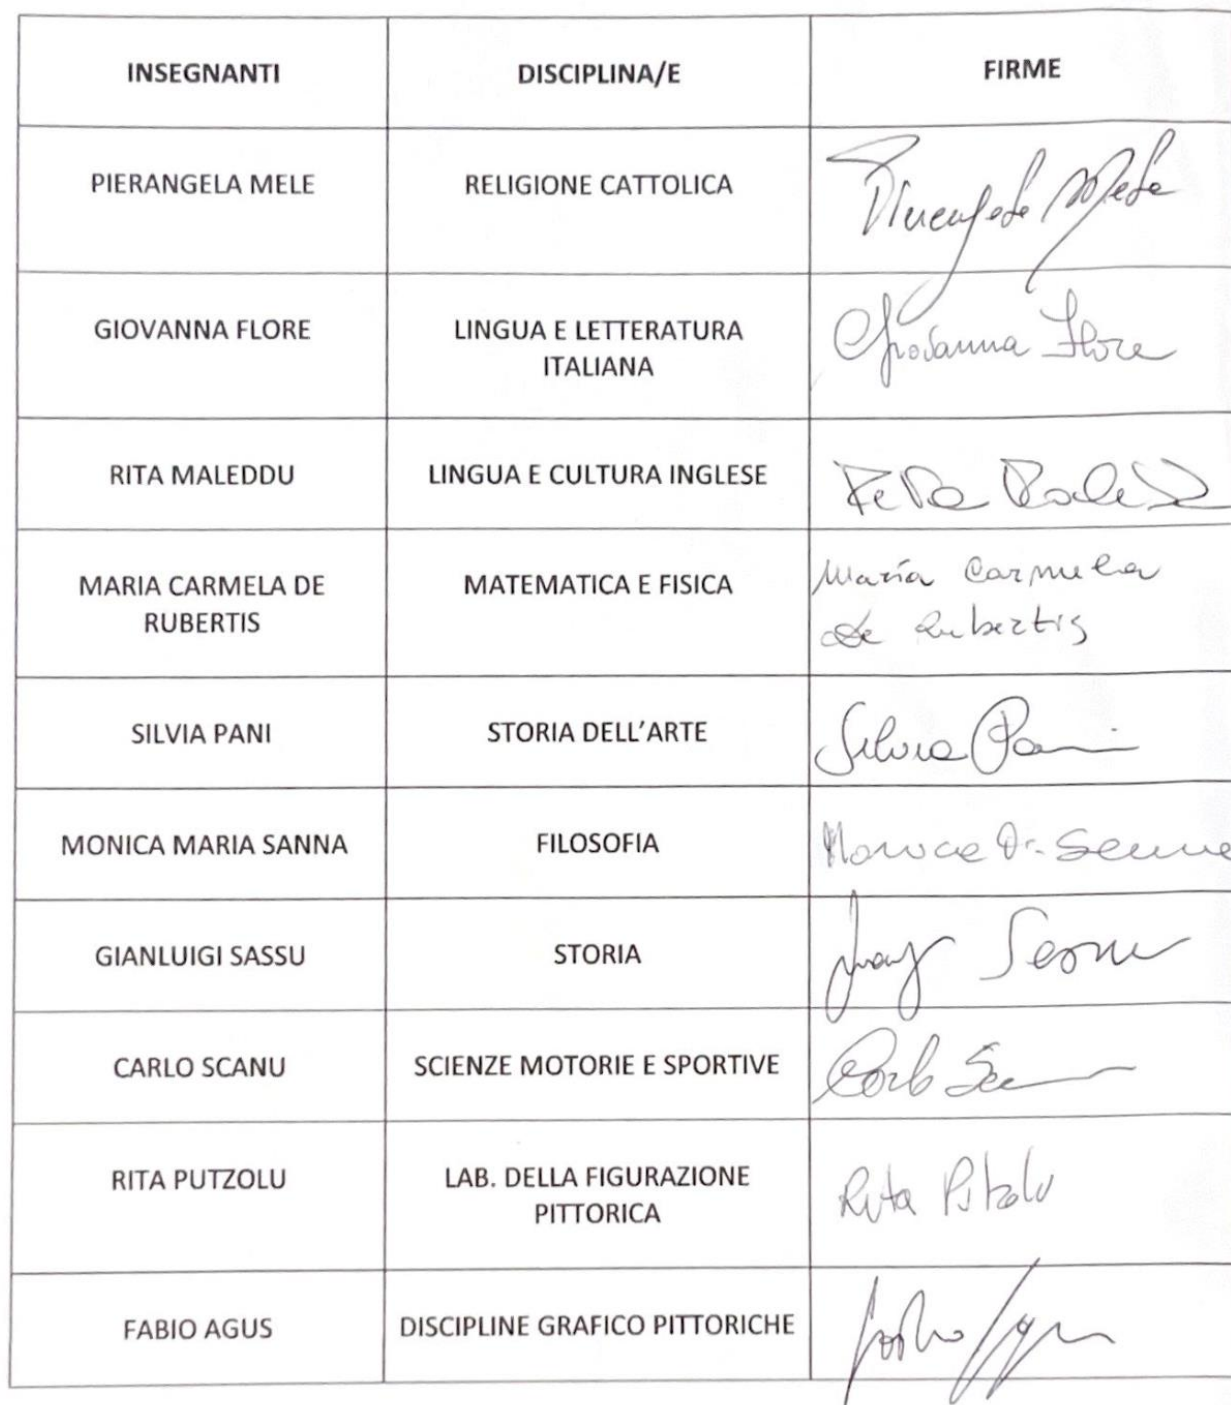 INSEGNANTI DISCIPLINA/E FIRME
PIERANGELA MELE RELIGIONE CATTOLICA Pierangela Mele
GIOVANNA FLORE LINGUA E LETTERATURA
ITALIANA Giovanna Flore
RITA MALEDDU LINGUA E CULTURA INGLESE Rita
MARIA CARMELA DE
RUBERTIS MATEMATICA E FISICA Maria Carmela
de Rubertis
SILVIA PANI STORIA DELL'ARTE Silvia Pani
MONICA MARIA SANNA FILOSOFIA Monica M. Sanna
GIANLUIGI SASSU STORIA
CARLO SCANU SCIENZE MOTORIE E SPORTIVE Carlo
RITA PUTZOLU LAB. DELLA FIGURAZIONE
PITTORICA Rita Putzolu
FABIO AGUS DISCIPLINE GRAFICO PITTORICHE